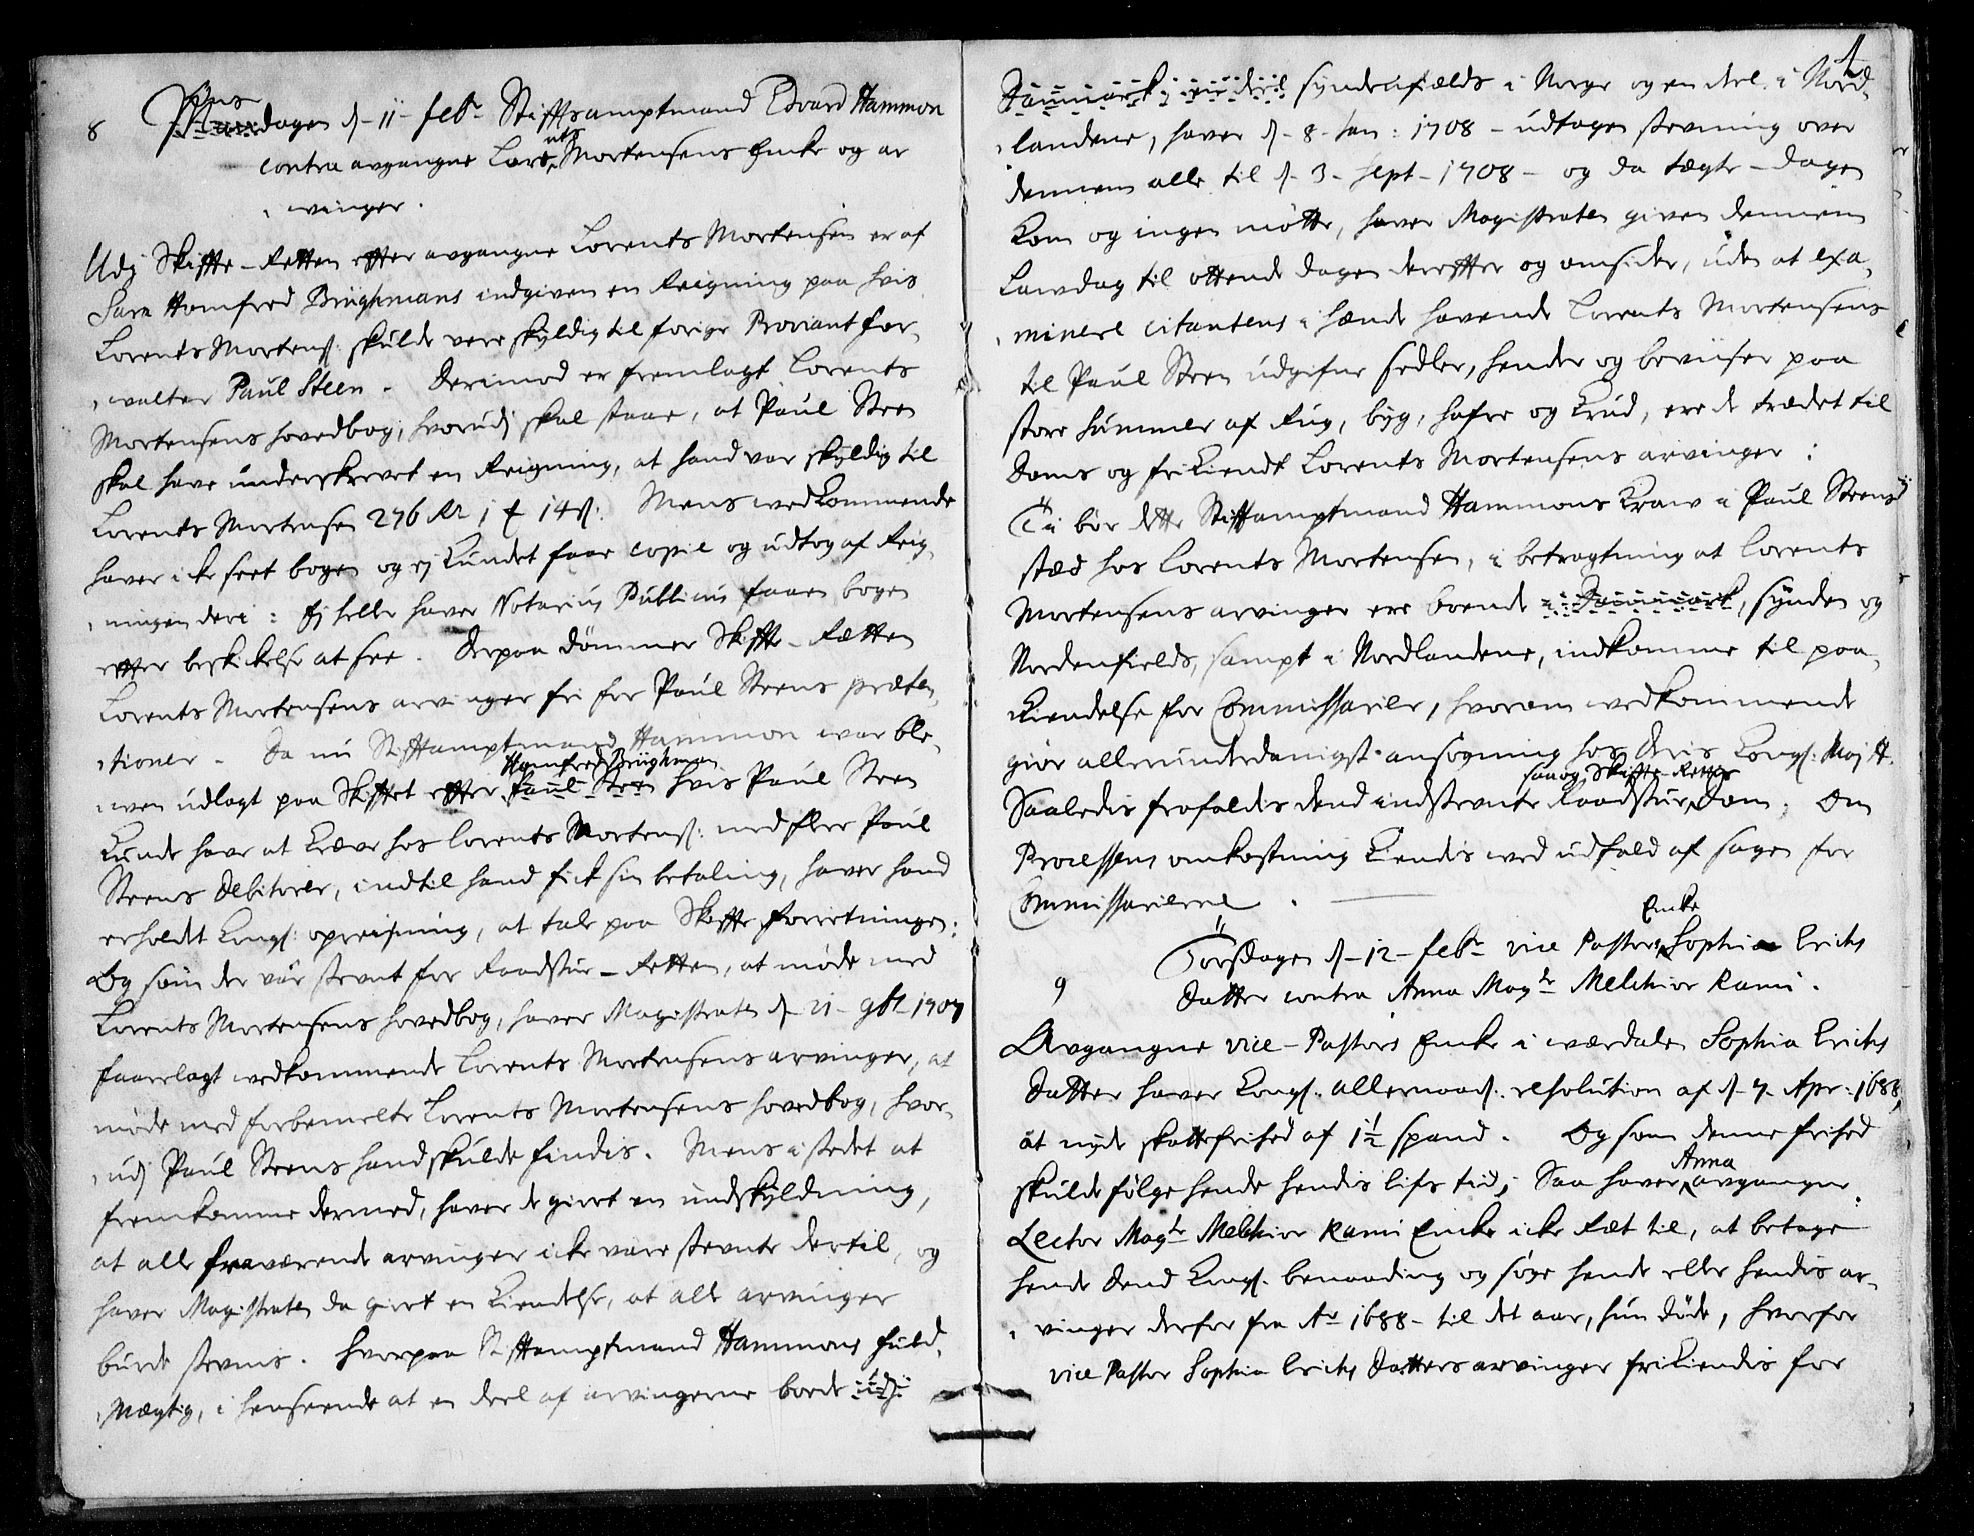 8 Onsdagen d. 11 febr. Stifftsamptmand Edvard Hammon
contra avgangne Lorents Mortensens Encke og ar
vinger.
Udj Skiffte-Retten effter avgangne Lorents Mortensen er af
Sara Homfred Brüghmans indgiven en Reigning paa hvis
Lorents Mortens: skulde vere skyldig til forige Proviant for,
walter Paul Steen. Derimod er fremlagt Lorents
Mortensens hovedbog, hvorudj skal staae, at Paul Steen
skal have underskrevet en Reigning, at hand var skyldig til
Lorents Mortensen 276 Rdr 1 ₰ 14 ß: Mens wedkommende
haver icke seet bogen og ej kundet faae copie og udtog af Reig,
ningen deri: Ej heller haver Notarius Publicus faaen bogen
effter beskickelse at see. Derpaa dömmer Skiffte-Rætten
Lorents Mortensens arvinger fri for Paul Steens præten,
tioner. Da nu Stifftamptmand Hammon war ble,
wen udlagt paa Skifftet effter Homfred Brüghman hvis Paul Steen
kunde have at kræve hos Lorents Mortens: med flere Paul
Steens Debitorer, indtil hand fick sin betaling, haver hand
erholdet Kongl: opreisning, at tale paa Skiffte forretningen:
Og som der vàr stevnt for Raadstue-Retten, at möde med
Lorents Mortensens hovedbog, haver Magistraten d. 21 9br. 1707
faarelagt wedkommende Lorents Mortensens arvinger, at
möde med forbemelte Lorents Mortensens hovedbog, hvor,
udj Paul Steens hand skulde findis. Mens i stedet at
fremkomme dermed, haver de giort en undskyldning,
at alle fraværende arvinger icke vare stevnte dertil, og
haver Magistraten da giort en kiendelse, at alle arvinger
burde stevnis. Hvorpaa Stifftamptmand Hammons fuld,
mægtig, i henseende at en deel af arvingerne boede udj
Danmark, en deel syndenfields i Norge og en deel i Nord,
landene, haver d. 8 Jan: 1708 udtagen stevning over
dennem alle til d. 3 Sept. 1708 og da tægte-dagen
kom og ingen mötte, haver Magistraten given dennem
Lawdag til ottende dagen dereffter og omsider, uden at exa,
minere Citantens i hænde havende Lorents Mortensens
til Paul Steen udgifne sedler, hender og beviiser paa
store summer af Rug, byg, hafre og Krud, ere de trædet til
Doms og frikiendt Lorents Mortensens arvinger:
Ti bör dette Stifftamptmand Hammons Kraw i Paul Steens
stæd hos Lorents Mortensen, i betragtning at Lorents
Mortensens arvinger ere boende i Danmark, synden og
Nordenfields, sampt i Nordlandene, indkomme til paa,
kiendelse for Commissarier, hvorom wedkommende
giör allerunderdanigst ansögning hos Deris Kongl: Majtt.
Saaledis frafaldes dend indstevnte Raadstue, saa og Skiffte-Rettes Dom, Om
Processens omkostning kendis wed udfald af sagen for
Commissarierne.
9 Torsdagen d. 12 febr. vice Pastors Encke Sophia Erichs
Datter contra Anna Magr. Melchior Rami.
Avgangne vice-Pastors Encke i wærdalen Sophia Erichs
Datter haver Kongl. allernaad: resolution af d. 7 Apr. 1688,
at nyde skattefrihed af 1 1/2 spand. Og som denne frihed
skulde fölge hende hendis lifs tid, Saa haver Anna avgangne
Lector Magr. Melchior Rami Encke icke Ræt til, at betage
hende dend Kongl. benaading og söge hende eller hendis ar,
vinger derfor fra Ao 1688 til det aar, hun döde, hvorfor
vice Pastor Sophia Erichs Datters arvinger frikiendis for